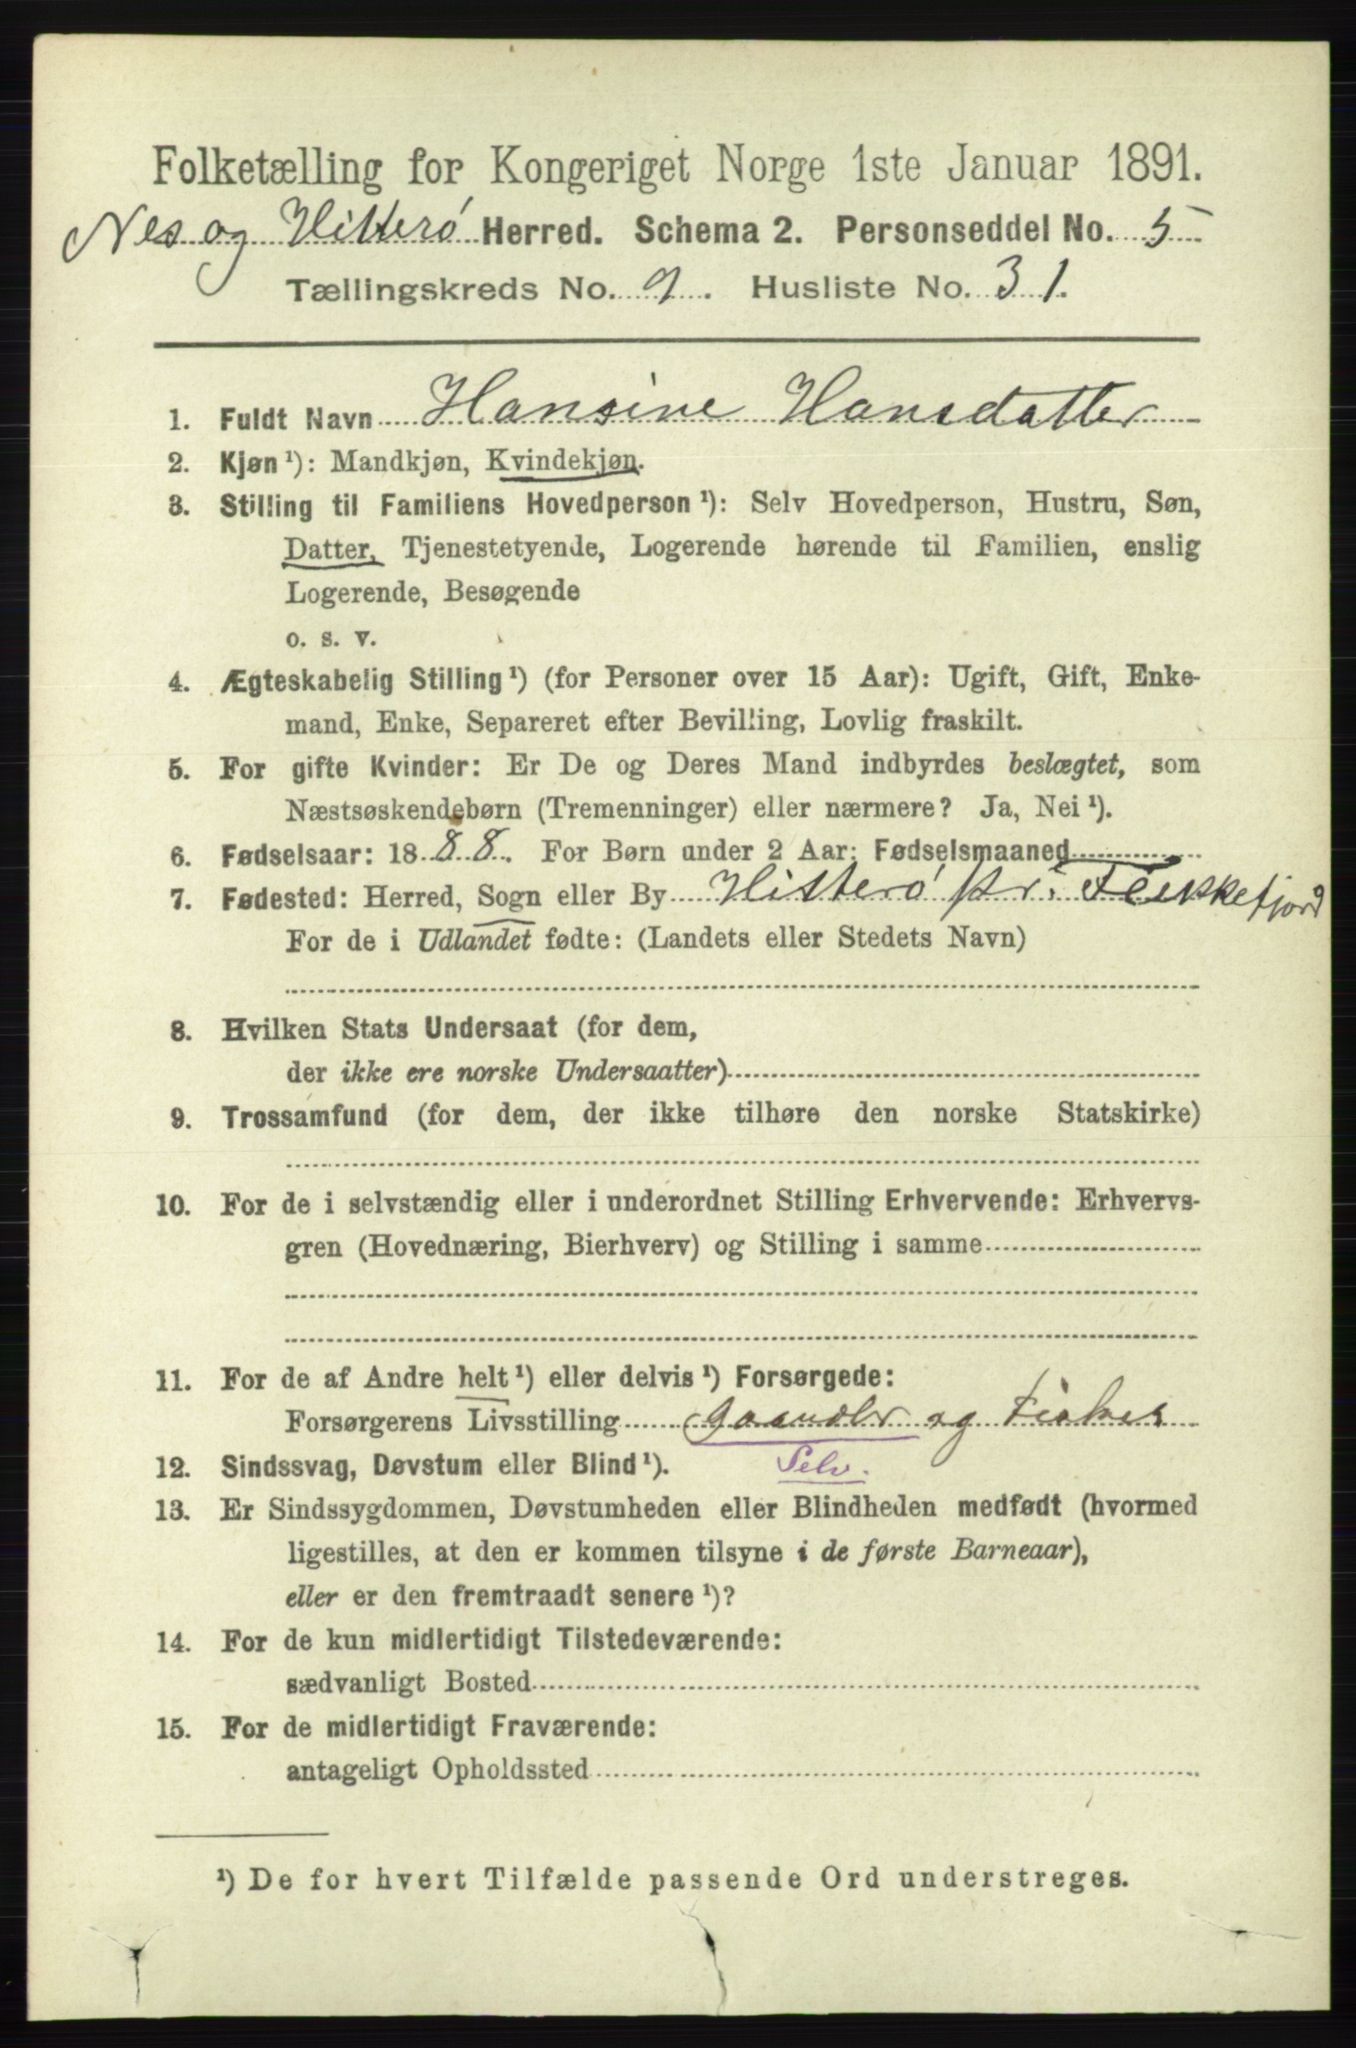 Folketælling for Kongeriget Norge 1ste Januar 1891.
Nes og Hitterø Herred. Schema 2. Personseddel No. 5
Tællingskreds No. 9. Husliste No. 31.
1. Fuldt Navn Hansine Hansdatter
2. Kjøn ¹): Mandkjøn, Kvindekjøn.
3. Stilling til Familiens Hovedperson ¹): Selv Hovedperson, Hustru, Søn,
Datter, Tjenestetyende, Logerende hørende til Familien, enslig
Logerende, Besøgende
o. s. v.
4. Ægteskabelig Stilling ¹) (for Personer over 15 Aar): Ugift, Gift, Enke-
mand, Enke, Separeret efter Bevilling, Lovlig fraskilt.
5. For gifte Kvinder: Er De og Deres Mand indbyrdes beslægtet, som
Næstsøskendebørn (Tremenninger) eller nærmere? Ja, Nei ¹).
6. Fødselsaar: 1888. For Børn under 2 Aar: Fødselsmaaned
7. Fødested: Herred, Sogn eller By Hitterø pr. Flekkefjord
For de i Udlandet fødte: (Landets eller Stedets Navn)
8. Hvilken Stats Undersaat (for dem,
der ikke ere norske Undersaatter)
9. Trossamfund (for dem, der ikke tilhøre den norske Statskirke)
10. For de i selvstændig eller i underordnet Stilling Erhvervende: Erhvervs-
gren (Hovednæring, Bierhverv) og Stilling i samme
11. For de af Andre helt ¹) eller delvis ¹) Forsørgede:
Forsørgerens Livsstilling Gaardbr og Fisker
Selv.
12. Sindssvag, Døvstum eller Blind ¹).
13. Er Sindssygdommen, Døvstumheden eller Blindheden medfødt (hvormed
ligestilles, at den er kommen tilsyne i de første Barneaar),
eller er den fremtraadt senere ¹)?
14. For de kun midlertidigt Tilstedeværende:
sædvanligt Bosted
15. For de midlertidigt Fraværende:
antageligt Opholdssted
¹) De for hvert Tilfælde passende Ord understreges.